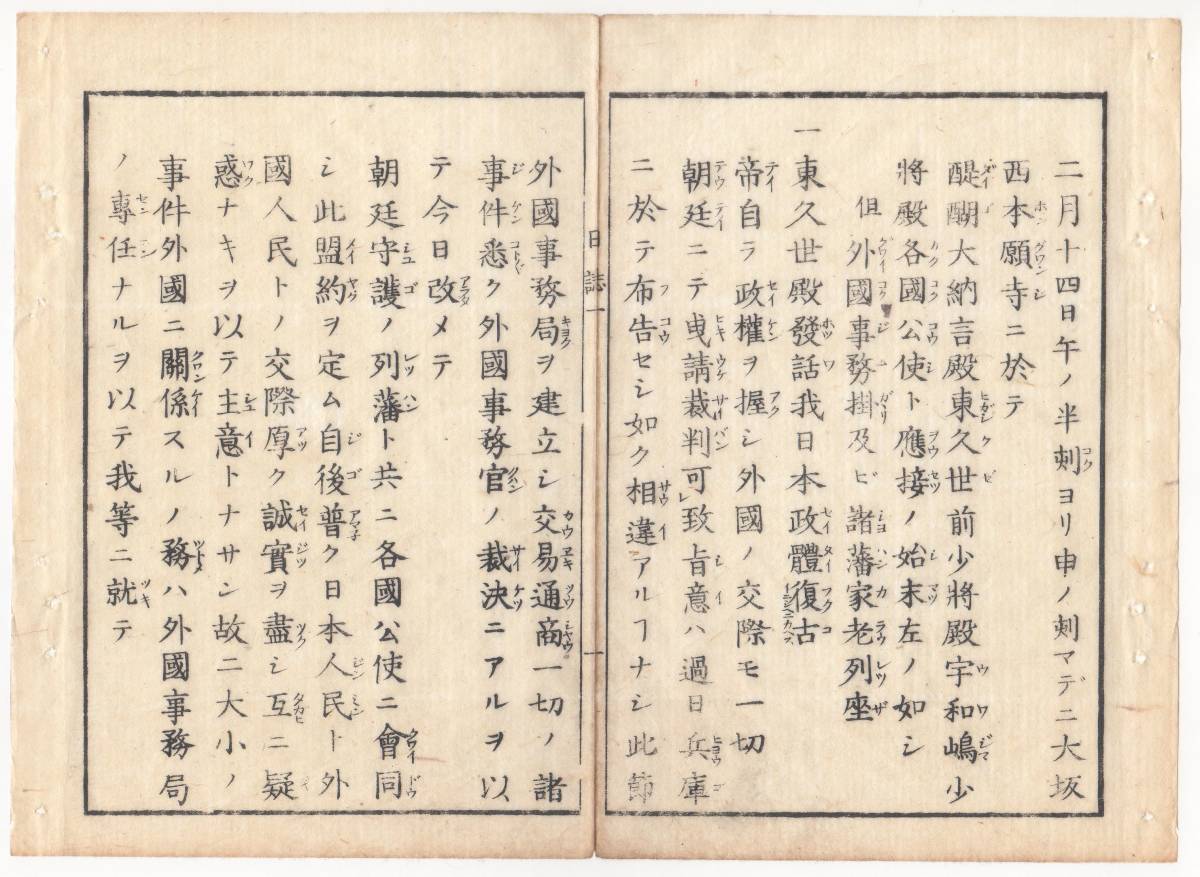 二月十四日午ノ半刺ヨリ申ノ刺マデニ大坂
西本願寺ニ於テ
醍醐大納言殿東久世前少將殿宇和嶋少
將殿各國公使ト應接ノ始末左ノ如シ
但外國事務掛及ビ諸藩家老列座
一東久世殿發話我日本政體復古
帝自ラ政權ヲ握シ外國ノ交際モ一切
朝廷ニテ曳請裁判可レ致旨意ハ過日兵庫
ニ於テ布告セシ如ク相違アルヿナシ此節
日誌一 一
外國事務局ヲ建立シ交易通商一切ノ諸
事件悉ク外國事務官ノ裁決ニアルヲ以
テ今日改メテ
朝廷守護ノ列藩ト共ニ各國公使ニ會同
シ此盟約ヲ定ム自後普ク日本人民ト外
國人民トノ交際厚ク誠實ヲ盡シ互ニ疑
惑ナキヲ以テ主意トナサン故ニ大小ノ
事件外國ニ關係スルノ務ハ外國事務局
ノ專任ナルヲ以テ我等ニ就テ